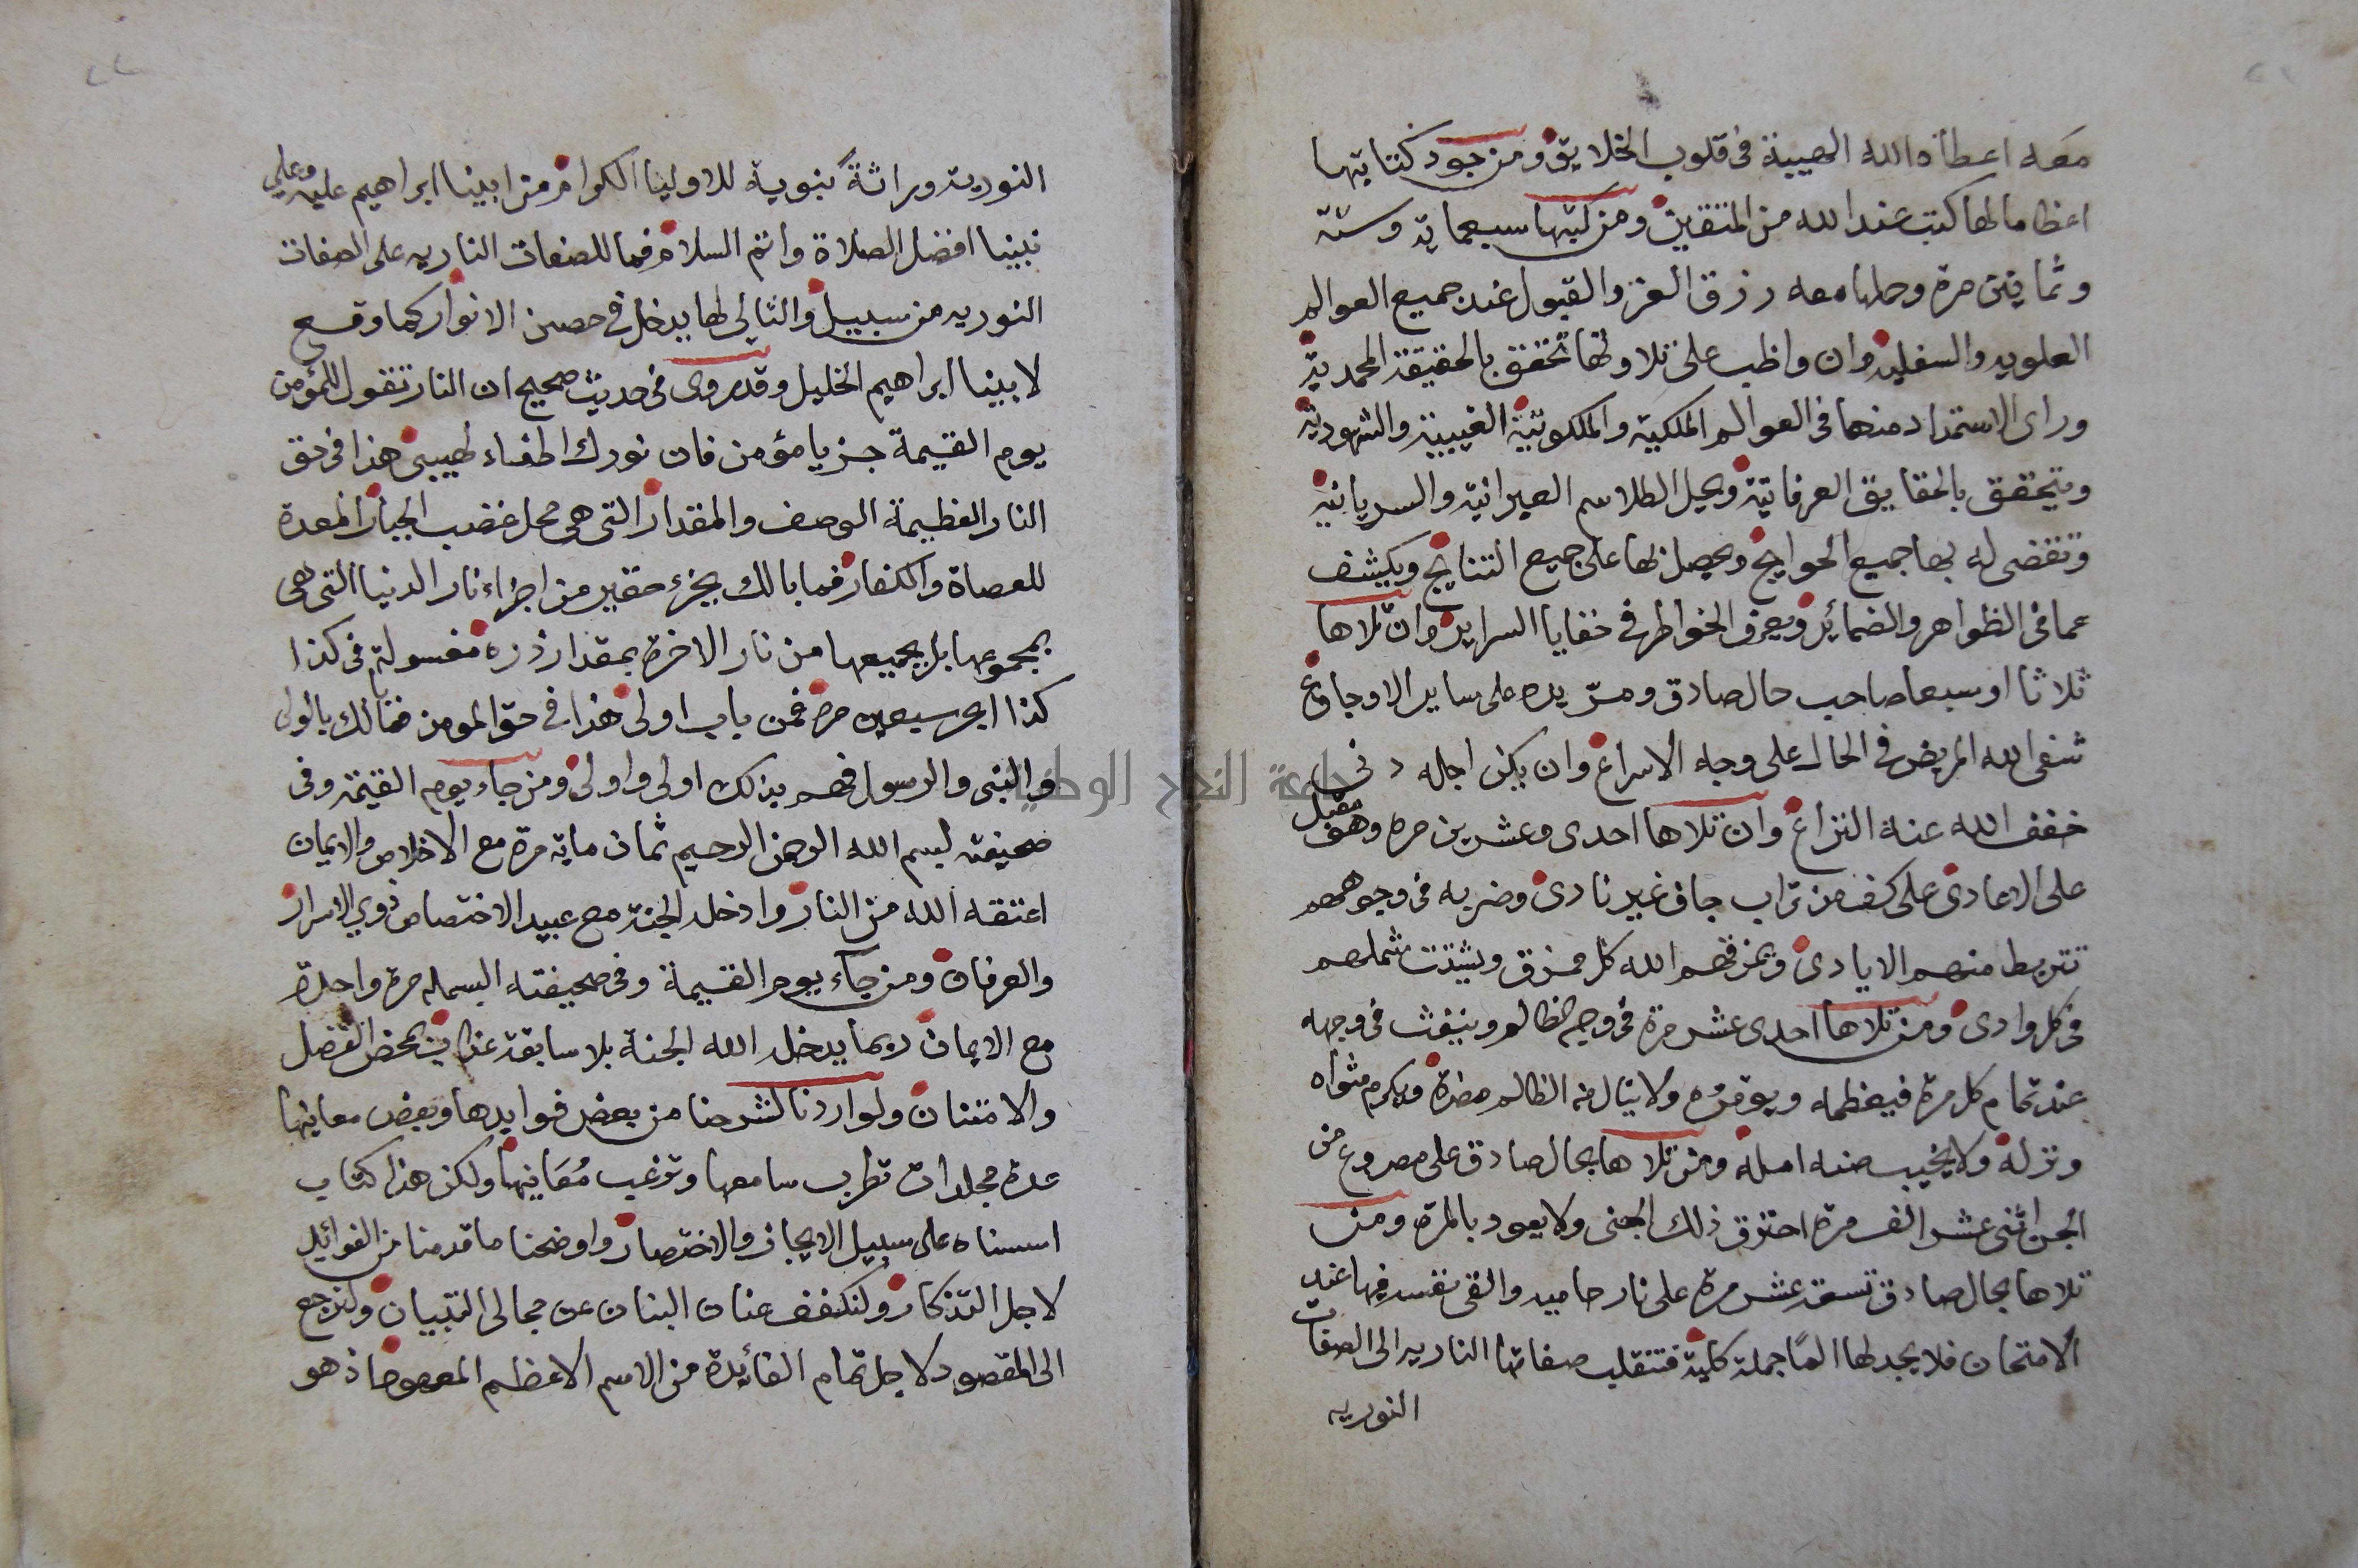 ٢١
معه اعطاه الله الهيبة فى قلوب الخلايق ومن جود كتابتها
اعظاما لها كتب عند الله من المتقين ومن كتبها سبعماية وستة
وثمانين مرة وحملها معه رزق العز والقبول عند جميع العوالم
العلويه والسفليه وان واظب على تلاوتها تحقق بالحقيقة المحمدية
وراى الاستمداد منها فى العوالم الملكية والملكوتية الغيبية والشهودية
ويتحقق بالحقايق العرفانية ويحيل الطلاسم العبرانية والسريانية
وتقضى له بها جميع الحوايج ويحصل بها على جميع النتايج ويكشف
عما فى الظواهر والضمائر ويعرف الخواطر فى خفايا السراير وان تلاها
ثلاثا او سبعا صاحب حال صادق ومرّ يده على ساير الاوجاع
شفى الله المريض فى الحال على وجه الاسراع وان يكن اجله دنى
خفف الله عنه النزاع وان تلاها احدى وعشرين مره وهو مقبل
على الاعادى على كف من تراب جاف غير نادى وضربه فى وجوههم
تتربط منهم الايادى ويمزقهم الله كل ممزق ويشتت شملهم
فى كل وادى ومن تلاها احدى عشر مرة فى وجه الظالم وينفث فى وجهه
عند تمام كل مرة فيعظمه ويوقره ولا ينال من الظالم مضرة ويكرم مثواه
ونزله ولا يخيب منه امله ومن تلاها بحال صادق على مصروع من
الجن اثنى عشر الف مرة احترق ذلك الجنى ولا يعود بالمرة ومن
تلاها بحال صادق تسعة عشر مرة على نار حاميه والقى نفسه فيها عند
الامتحان فلا يجد لها المًا جملة كلية فتنقلب صفاتها الناريه الى الصفات
النوريه
٢٢
النورية وراثةً نبوية للاوليا الكرام من ابينا ابراهيم عليه وعلى
نبينا افضل الصلاة واتم السلام فما للصفات الناريه على الصفات
النوريه من سبيل والتالى لها يدخل فى حصن الانوار كما وقع
لابينا ابراهيم الخليل وقد روى فى حديث صحيح ان النار تقول للمؤمن
يوم القيمة جز يا مؤمن فان نورك اطفاء لهيبى هذا فى حق
النار العظيمة الوصف والمقدار التى هى محل غضب الجبار المعدة
للعصاة والكفار فما بالك بجزء حقير من اجزاء نار الدنيا التى هى
بمجموعها بل بجميعها من نار الاخرة بمقدار ذره مغسولة فى كذا
كذا ابحر سبعين مره فمن باب اولى هذا فى حق المومن فما لك بالولى
والنبى والرسول فهم بذلك اولى واولى ومن جاء يوم القيمة وفى
صحيفته بسم الله الرحمن الرحيم ثمان ماية مرة مع الاخلاص والايمان
اعتقه الله من النار وادخله الجنة مع عبيد الاختصاص ذوي الاسرار
والعرفان ومن جآء يوم القيمة وفى صحيفته البسمله مرة واحدة
مع الايمان ربما يدخله الله الجنة بلا سابقة عذاب بمحض الفضل
والامتنان ولو اردنا لشرحنا من بعض فوايدها وبعض معانيها
عدة مجلدات تطرب سامعها وترغب مُعَانيها ولكن هذا كتاب
اسسناه على سبيل الايجاز والاختصار واوضحنا ما قدمنا من الفوائد
لاجل التذكار ولنكفف عنان البنان عن مجالى التبيان ولنرجع
الى المقصود لاجل تمام الفائدة من الاسم الاعظم المعصوم اذ هو
جامعة النجاح الوطنية